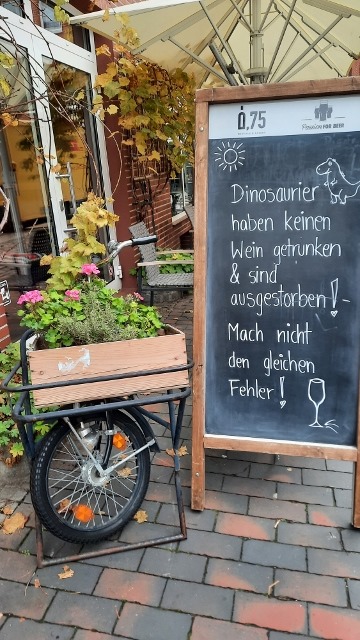 0,75
Passion FOR BEER
Dinosaurier
haben keinen
Wein getrunken
& sind
ausgestorben!
Mach nicht
den gleichen
Fehler!